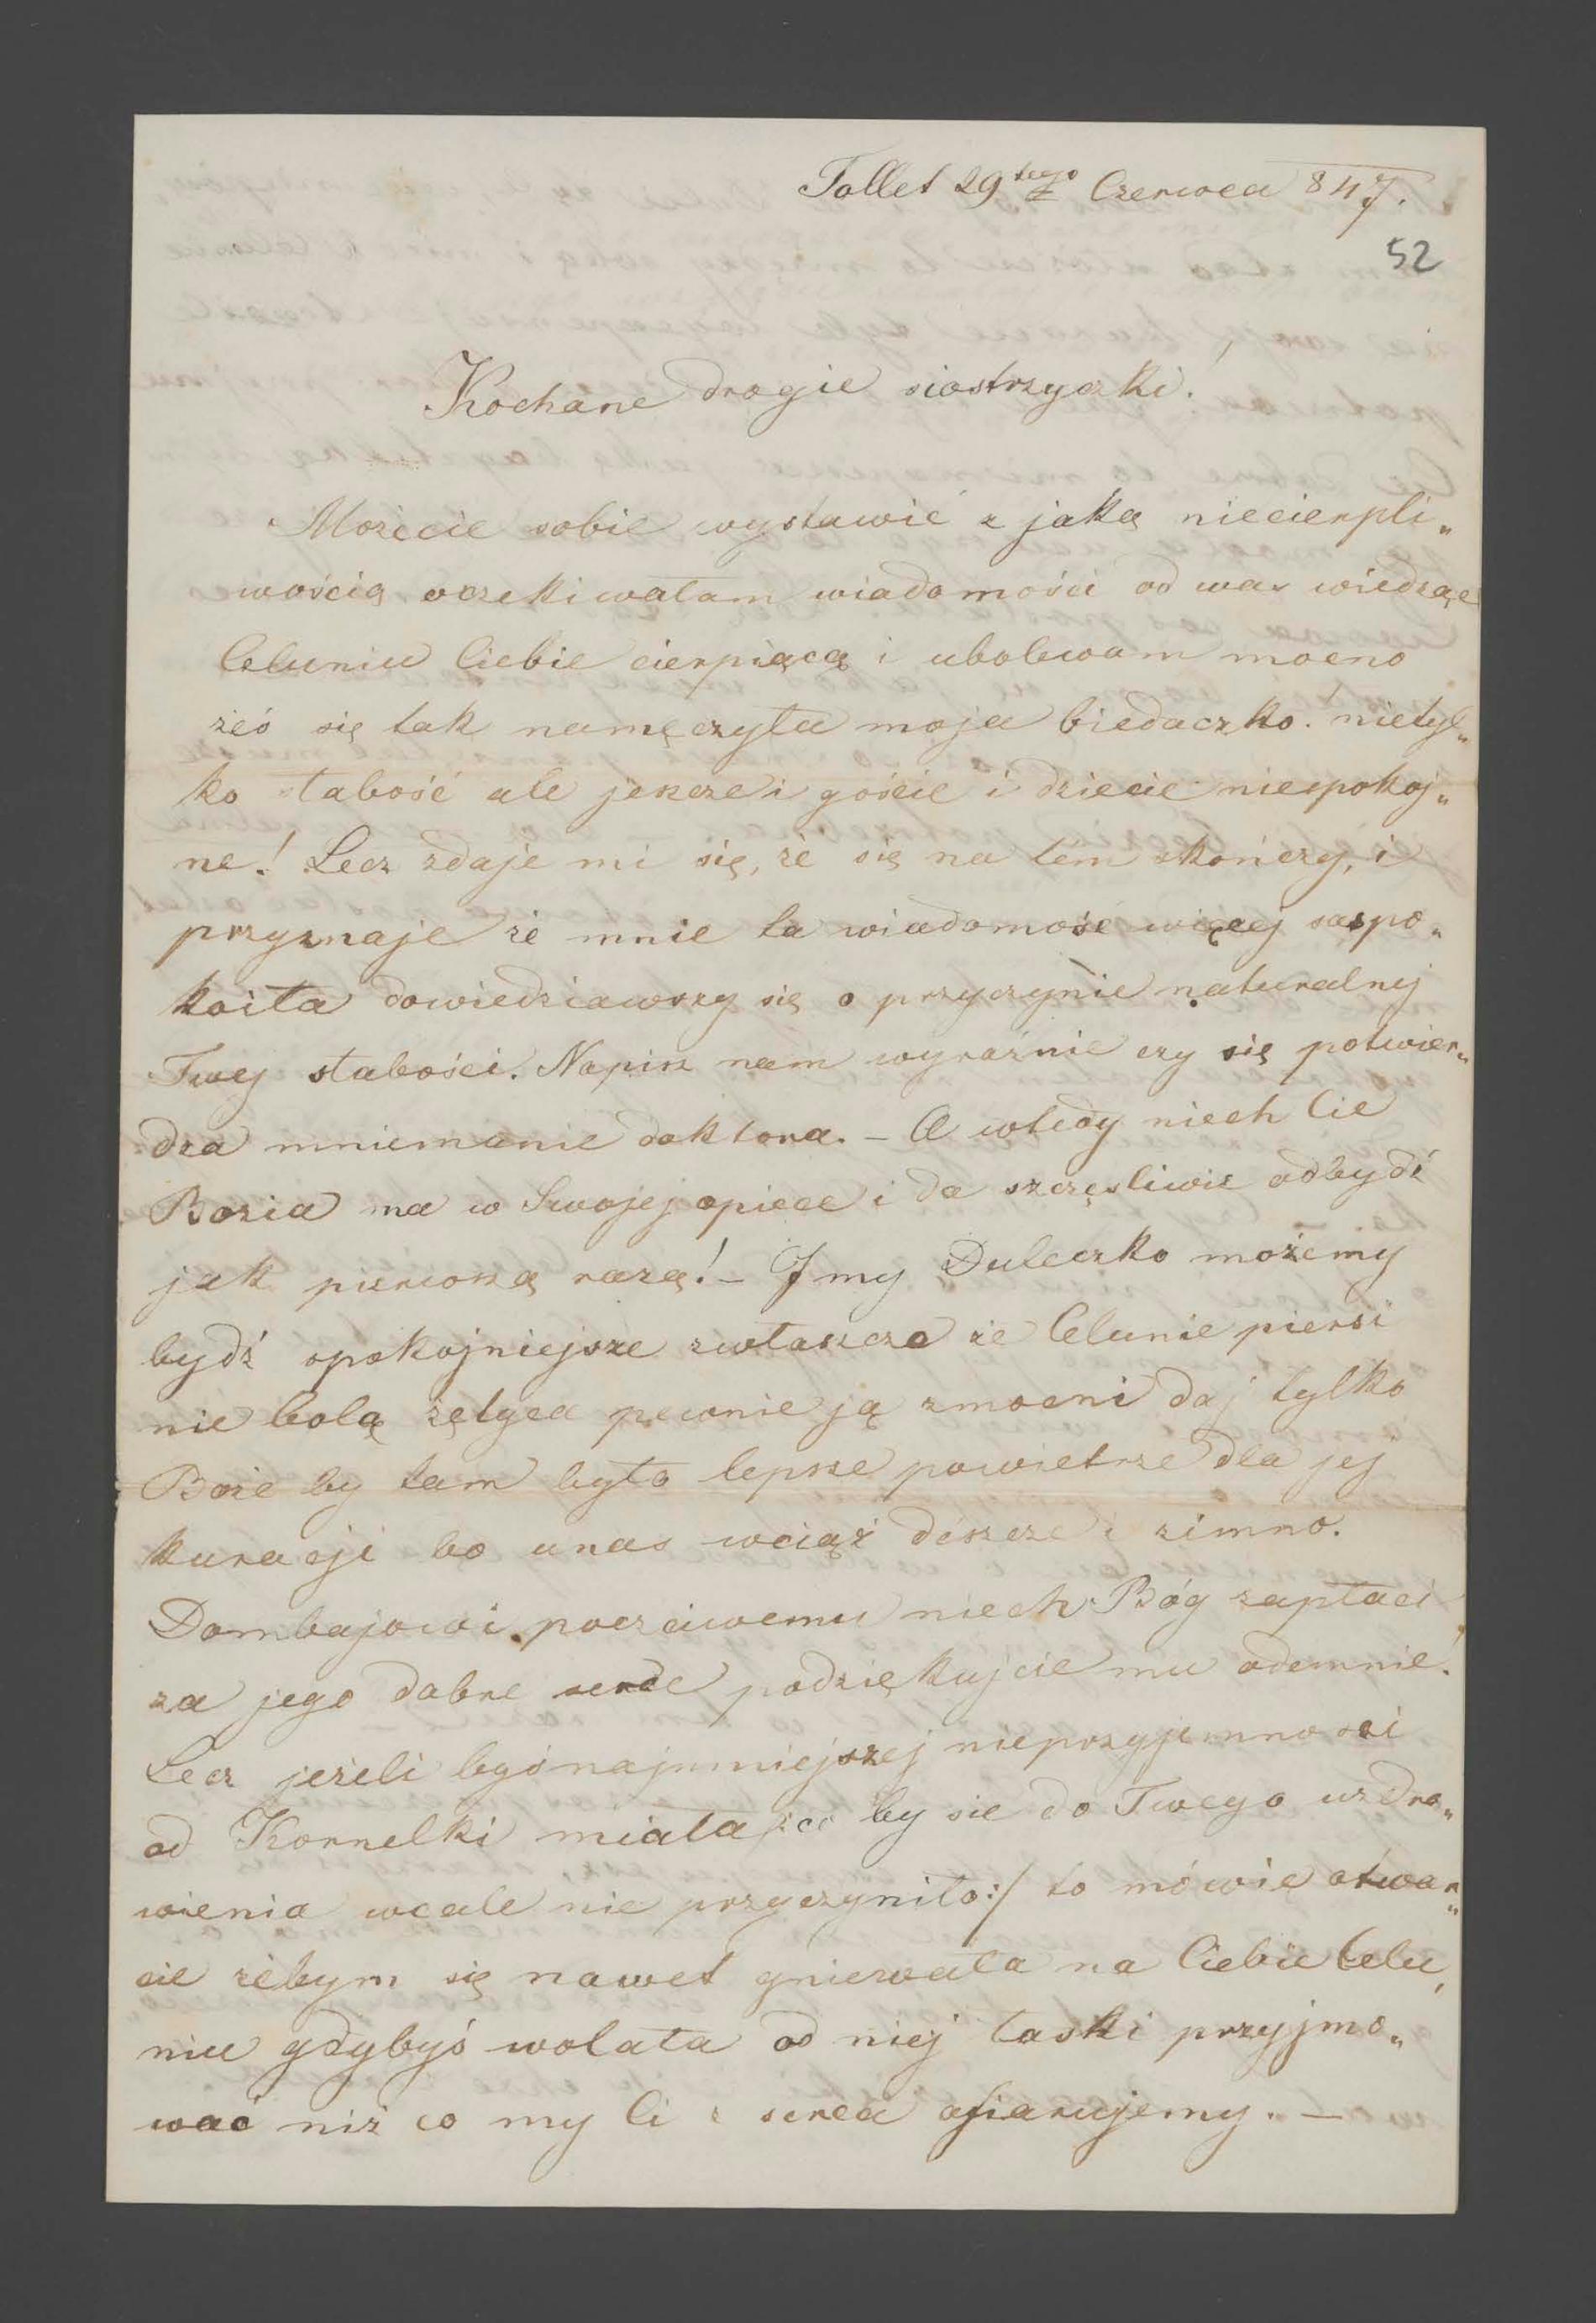 Tollet 29tego Czerwca 847.
52
Kochane drogie siostrzyczki!
Możecie sobie wystawić z jaką niecierpli„
wością oczekiwałam wiadomości od was wiedząc
Celuniu Ciebie cierpiącą i ubolewam mocno
żeś się tak namęczyła moja biedaczko! nietyl„
ko słabość ale jeszcze i goście i dziecie niespokoj„
ne! Lecz zdaje mi się, że się na tém skończy, i
przyznaje że mnie ta wiadomość więcej zaspo„
koiła dowiedziawszy się o przyczynie naturalnej
Twej słabości. Napisz nam wyraźnie czy się potwier„
dza mniemanie doktora. – A wtedy niech Cie
Bozia ma w Swojej opiece i da szczęsliwie odbydź
jak pierwszą razą! – I my Duleczko możemy
bydź spokojniejsze zwłaszcza że Celunie piersi
nie bolą żętyca pewnie ją zmocni daj tylko
Boże by tam było lepsze powietrze dla jej
kuracji bo unas wciąż dészcze i zimno.
Dombajowi poczciwemu niech Bóg zapłaci
za jego dobre serce podziękujcie mu odemnie!
Lecz jeżeli byś najmniejszej nieprzyjemności
od Kornelki miała /:co by sie do Twego uzdro„
wienia wcale nie przyczyniło:/ to mówie otwar„
cie żebym się nawet gniewała na Ciebie Celu„
niu gdybyś wolała od niej łaski przyjmo„
wać niż co my Ci z serca ofiarujemy. –